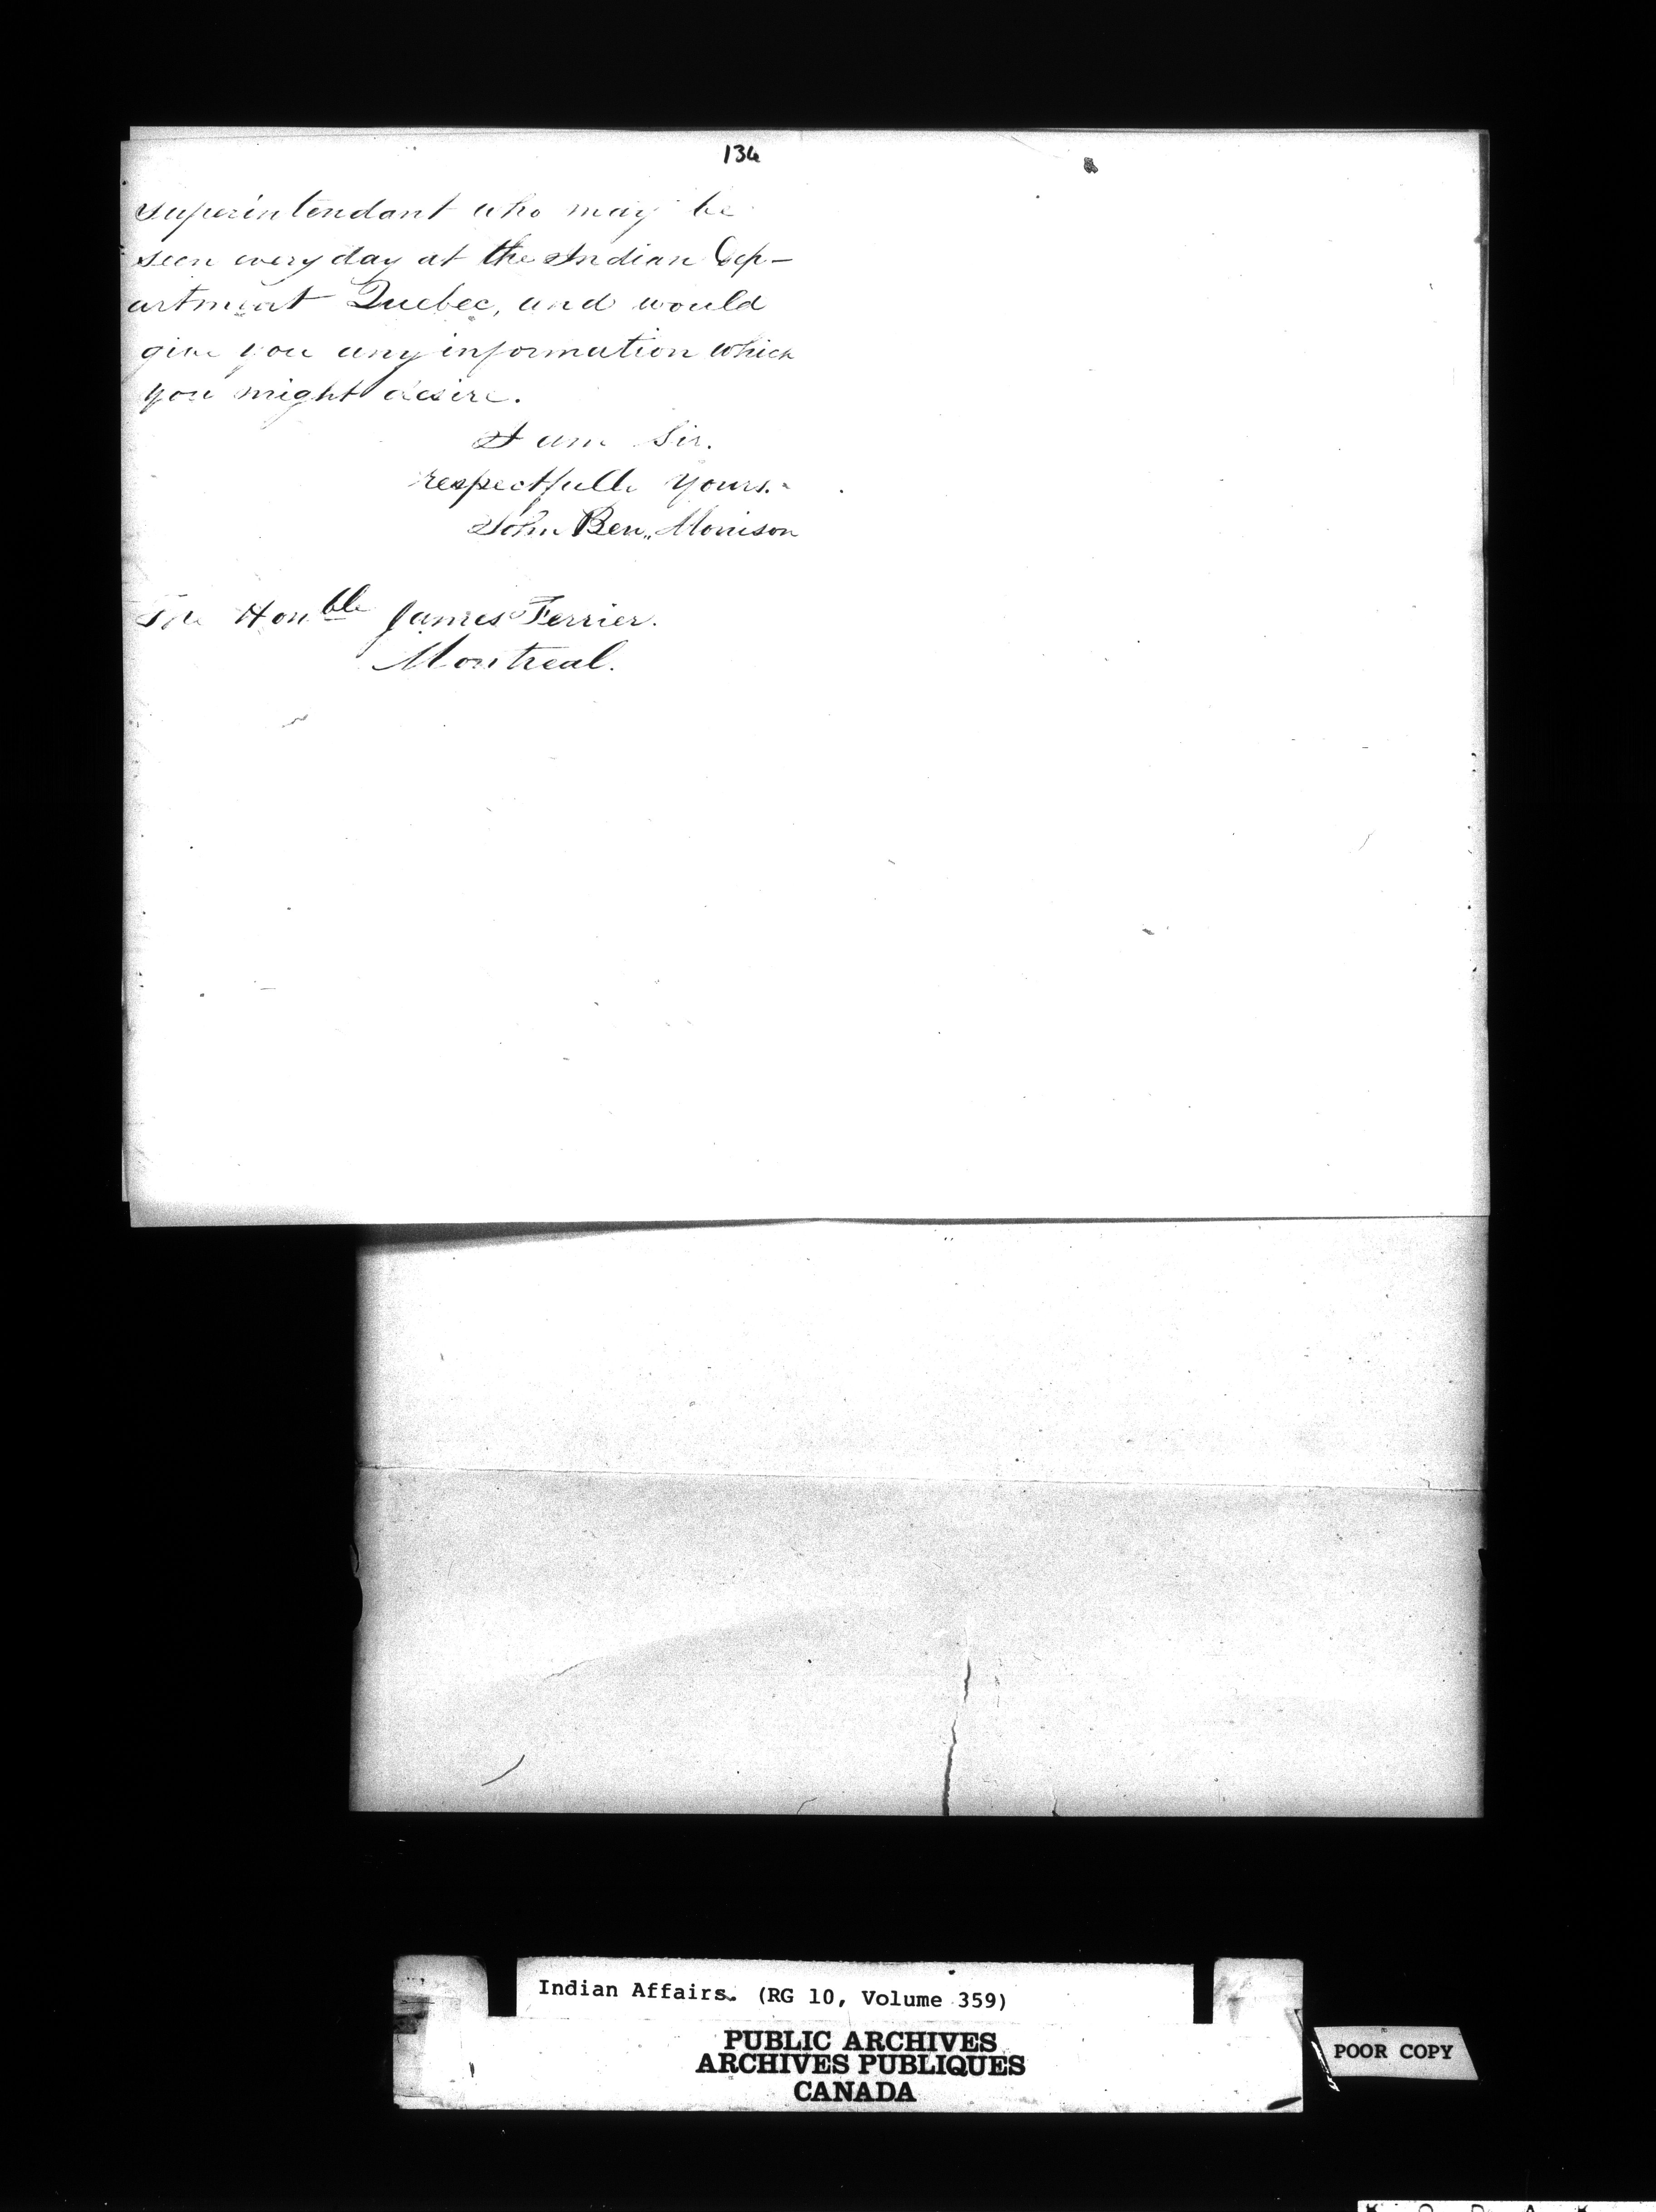 136
superintendant who may be
seen every day at the Indian Dep-
artment Quebec, and would
give you any information which
you might desire.
I am Sir.
respectfully yours.
John Ben,, Morrison
The Honble James Ferrier.
Montreal.
Indian Affairs. (RG 10, Volume 359)
PUBLIC ARCHIVES
ARCHIVES PUBLIQUES
CANADA
POOR COPY